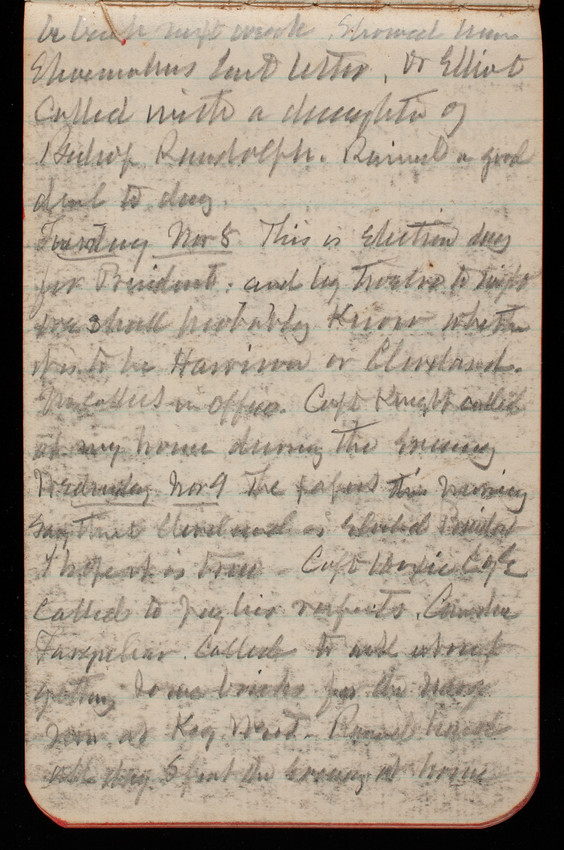 be back next week. Showed him
Shoemakers last letter, Dr Elliot
Called with a daughter of
Bishop Randolph. Rained a good
deal to day.
Tuesday Nov 8 This is Election day
for President. and by twelve to night
we shall probably Know whether
it is to be Harrison or Cleveland.
in office. Capt Knight called
at my house during the Evening
Wednesday Nov 9 The papers this morning
say that Cleveland is Elected President
I hope it is true Capt
Called to pay his respects.
Farquhar Called to ask about
getting some bricks for the Navy
at Key West. Rained hard
all day. Spent the Evening at home